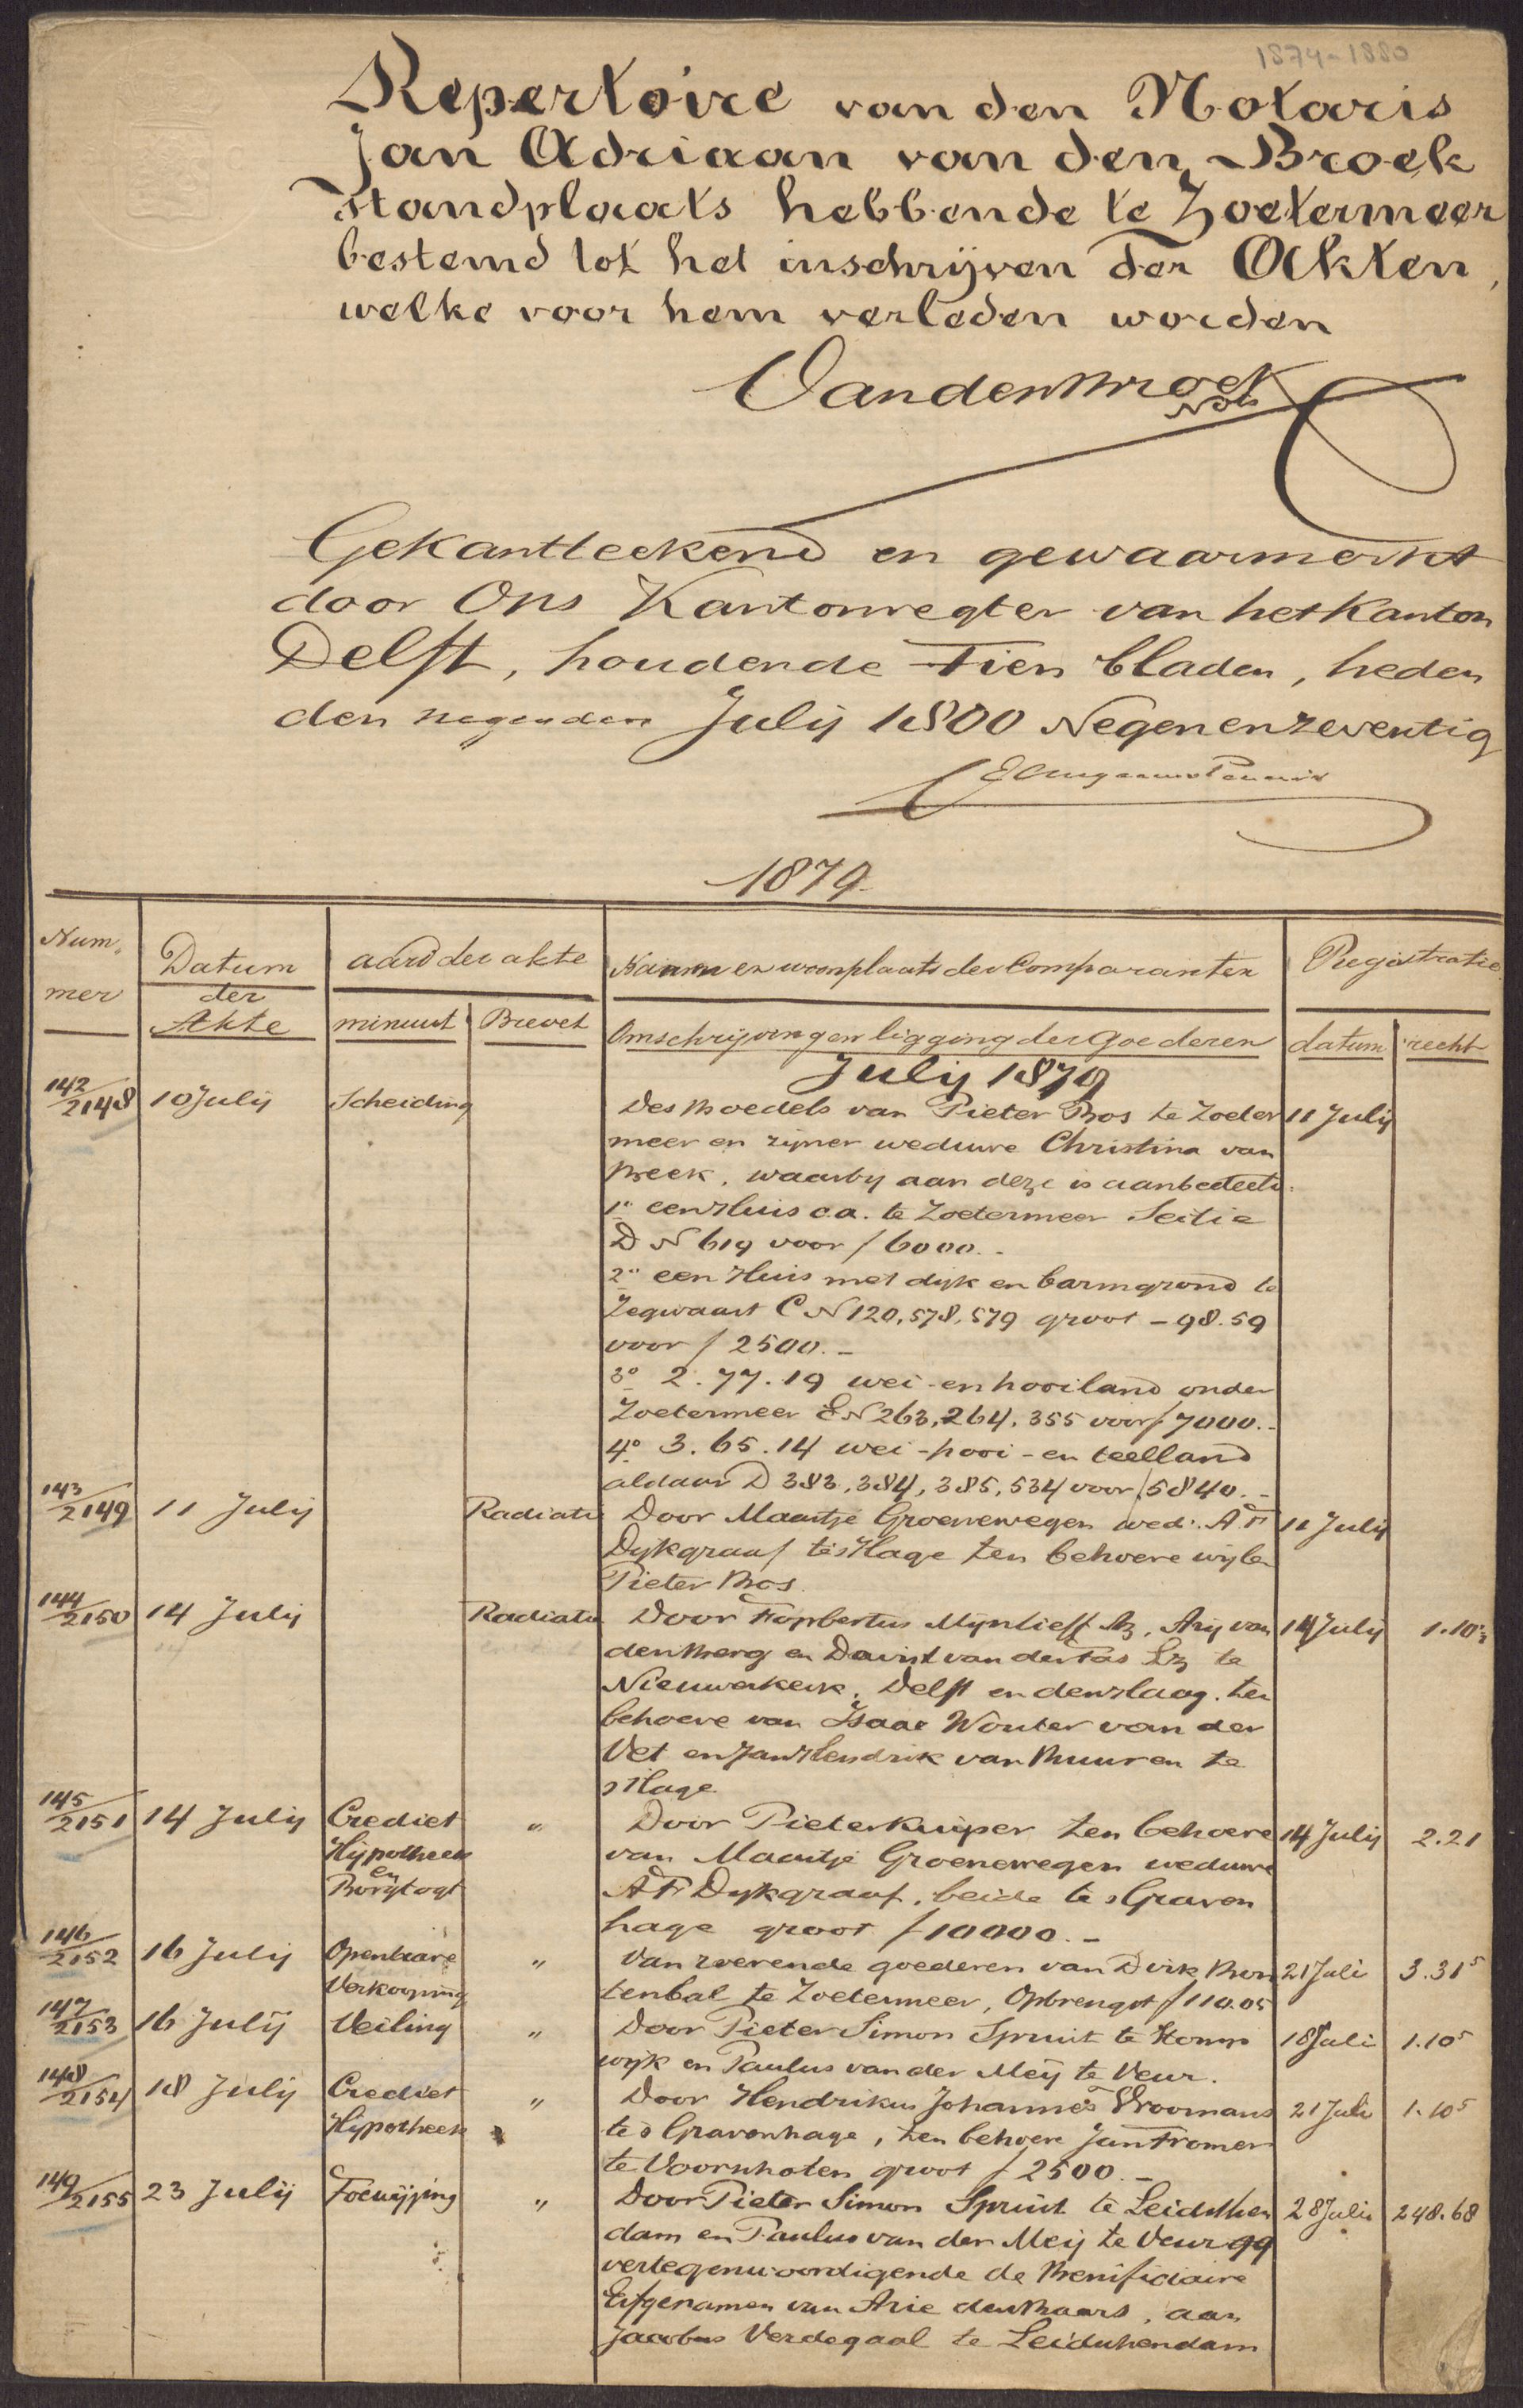 1874-1880
Repertoire van den Notaris
Jan Adriaan van den Broek
standplaats hebbende te Zoetermeer
bestemd tot het inschrijven der Akten,
welke voor hem verleden worden
VandenBroek
Nots
Gekantteekend en gewaarmerkt
door Ons Kantonregter van het Kanton
Delft, houdende Tien bladen, heden
den negenden Julij 1800 Negenenzeventig
1879
Num-
mer
Datum
der
Akte
aard der akte
minuut Brevet
Namen en woonplaats der Comparanten
Omschrijving en ligging der Goederen
Registratie
datum recht
July 1879
142/2148 10 Julij Scheiding Des Boedels van Pieter Bos te Zoeter 11 Julij
meer en zijner weduwe Christina van
Beek, waarby aan deze is aanbedeeld.
1o een Huis c.a. te Zoetermeer Sectie
D N 619 voor f 6000.-
2o een Huis met dijk en barmgrond te
Zegwaart C N 120, 578, 579 groot - 98.59
voor f 2500.-
3o 2.77.19 wei- en hooiland onder
Zoetermeer E N 263, 264, 355 voor f 7000.-
4o 3.65.14 wei- hooi- en teelland
aldaar D 383, 384, 385, 534 voor f 5840.-
143/2149 11 Julij Radiatie Door Maartje Groenewegen wed. A F 11 Julij
Dykgraaf te sHage ten behoeve wijlen
Pieter Bos.
144/2150 14 Julij Radiatie Door Fopbertus Mijnlieff Az, Arij van 14 Julij 1.10 5
den Berg en David van der Tas Lz te
Nieuwerkerk, Delft en den Haag. ten
behoeve van Isaac Wouter van der
Vet en Jan Hendrik van Buuren te
sHage
145/2151 14 Julij Crediet " Door Pieter Kuijper ten behoeve 14 Julij 2.21
Hijpotheek van Maartje Groenewegen weduwe
en
Borgtogt A F Dykgraaf, beide te sGraven
hage groot f 10000.-
146/2152 16 Julij Openbare " Van roerende goederen van Dirk Bon 21 Juli 3.31 5
Verkooping tenbal te Zoetermeer, Opbrengst f 110.05
147/2153 16 Julij Veiling " Door Pieter Simon Spruit te Stomp 18 Juli 1.10 5
wijk en Paulus van der Meij te Veur.
148/2154 18 Julij Crediet " Door Hendrikus Johannes Vroomans 21 Juli 1.10 5
Hijpotheek te s Gravenhage, ten behoeve Jan Fromer
te Voorschoten groot f 2500.-
149/2155 23 Julij Toewijzing " Door Pieter Simon Spruit te Leidschen 28 Juli 248.68
dam en Paulus van der Meij te Veur qq
vertegenwoordigende de Benificiaire
Erfgenamen van Arie den Baars, aan
Jacobus Verdegaal te Leidschendam